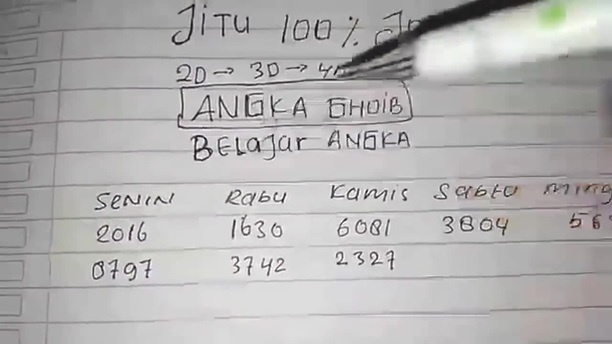 JITU 100%
2D → 3D →
ANGKA GHOIB
BELAJAR ANGKA
SENIN Rabu Kamis Sabtu
2016 1630 6081 3804
8797 3742 2327